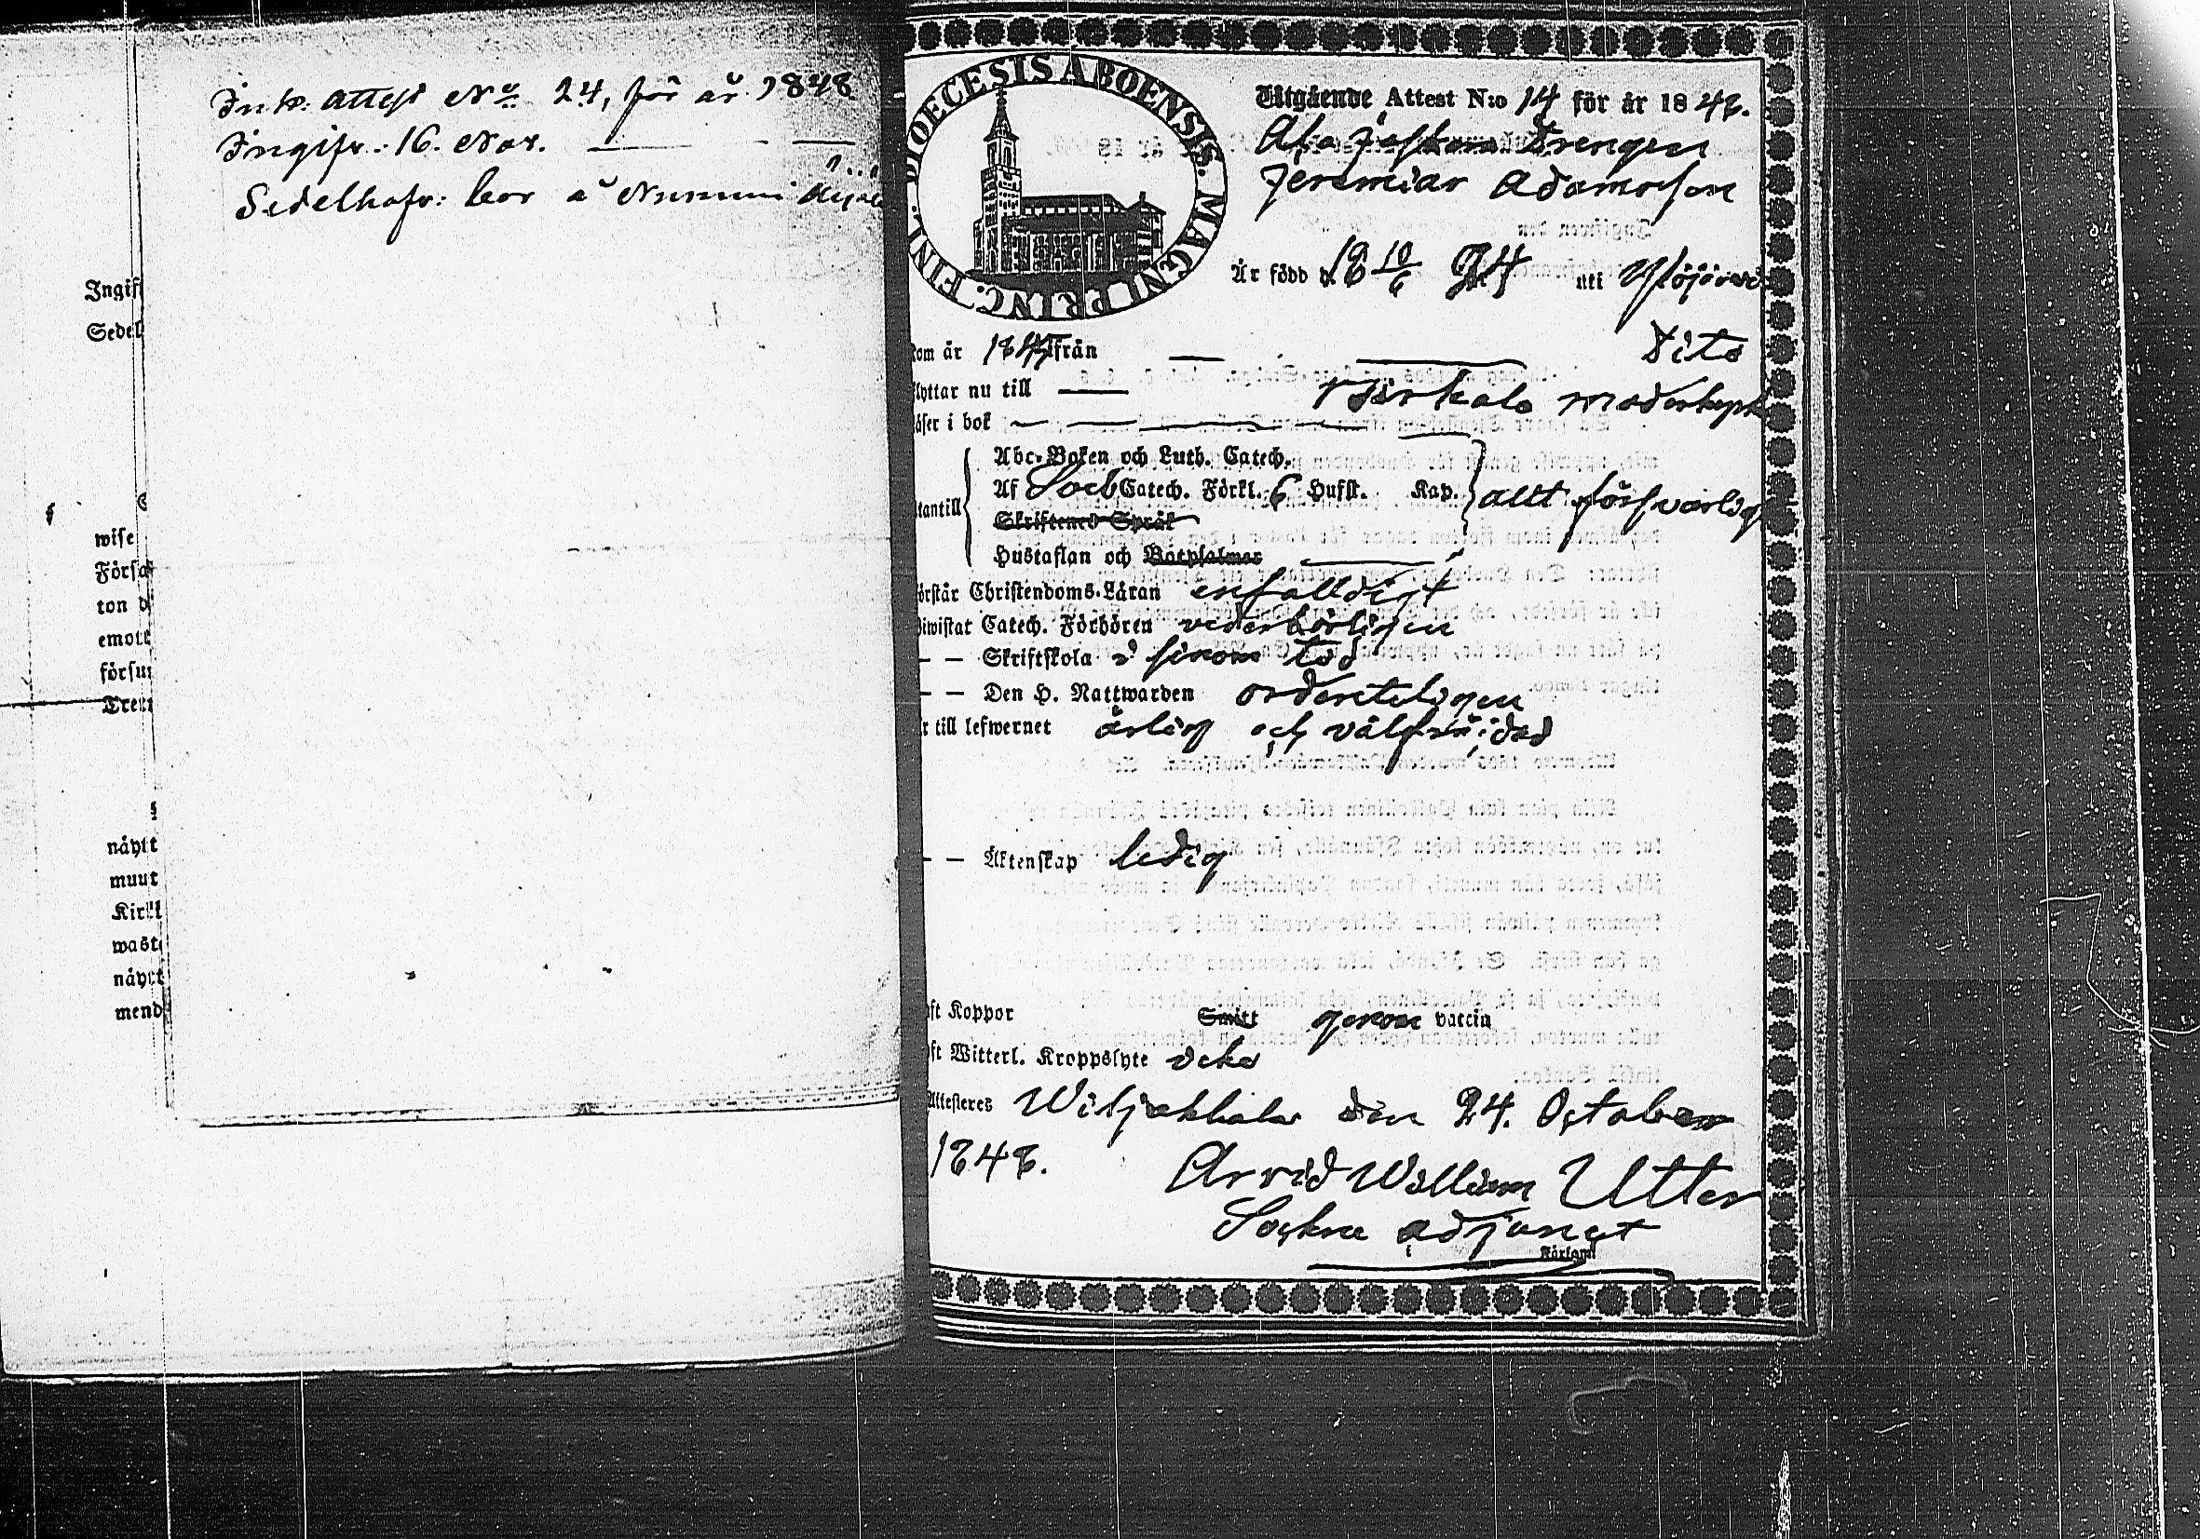 Ink. Attest No 24, för år 1848
Ingifv. 16. Nov.
Sedelhafv: bor å Nummi
Ingif
Sedel
wise
Förs
ton d
emott
försu
Tren
näytt
muut
Kirk
wast
näytt
mend
DIOECESIS ABOENSIS. MAGNI PRINC. FINL.
Utgående Attest N:o 14 för år 1848.
Drengen
Jeremias Adamsson
Är född d. 18 10/6 24 uti Ylöjärvi
kom år 1847 ifrån — — Dito
flyttar nu till — Birkala moderkap
läser i bok — — — —
Abc-Boken och Luth. Catech.
Af Soeb Catech. Förkl. 6 Hufst. Kap. allt försvarlig
utantill
Skriftenes Språk
Hustaflan och Botpsalmer —
förstår Christendoms-Läran enfaldigt
biwistat Catech. Förhören vederbörligen
— — Skriftskola i sinom tid
— — Den H. Nattwarden ordenteligen
är till lefwernet ärlig och välfrägdad
— — Äktenskap ledig
haft Koppor Smitt genom vaccin
haft Witterl. Kroppslyte icke
Attesteres Wiljakkala den 24. October
1848. Arvid William Utter
Sockne adjunct